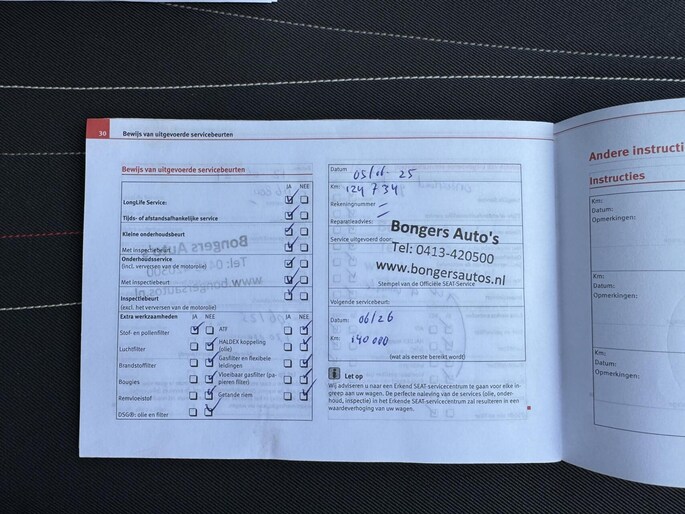 30 Bewijs van uitgevoerde servicebeurten
Bewijs van uitgevoerde servicebeurten
JA NEE
LongLife Service:
Tijds- of afstandsafhankelijke service
Kleine onderhoudsbeurt
Met inspectiebeurt
Onderhoudsservice
(incl. verversen van de motorolie)
Met inspectiebeurt
Inspectiebeurt
(excl. het verversen van de motorolie)
Extra werkzaamheden JA NEE JA NEE
Stof- en pollenfilter
ATF
Luchtfilter
HALDEX koppeling
(olie)
Brandstoffilter
Gasfilter en flexibele
leidingen
Bougies
Vloeibaar gasfilter (pa-
pieren filter)
Remvloeistof
Getande riem
DSG®: olie en filter
Datum 05/ -25
Km: 124 734
Rekeningnummer
Reparatieadvies:
Service uitgevoerd door:
Bongers Auto's
Tel: 0413-420500
www.bongersautos.nl
Stempel van de Officiële SEAT-Service
Volgende servicebeurt:
Datum: 06/26
Km: 140 000
(wat als eerste bereikt wordt)
Let op
Wij adviseren u naar een Erkend SEAT-servicecentrum te gaan voor elke in-
greep aan uw wagen. De perfecte naleving van de services (olie, onder-
houd, inspectie) in het Erkende SEAT-servicecentrum zal resulteren in een
waardeverhoging van uw wagen.
Andere instructi
Instructies
Km:
Datum:
Opmerkingen:
Km:
Datum:
Opmerkingen:
Km:
Datum:
Opmerkingen: